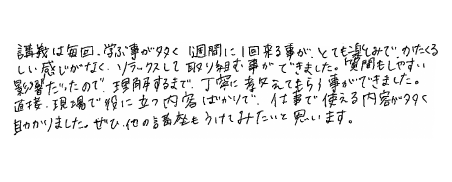 講義は毎回、学ぶ事が多く1週間に1回来る事が、とても楽しみで、かたくる
しい感じがなく、リラックスして取り組む事ができました。質問もしやすい
影響だったので、理解するまで、丁寧に教えてもらう事ができました。
直接、現場で役に立つ内容ばかりで、仕事で使える内容が多く
助かりました。ぜひ、他の講座もうけてみたいと思います。